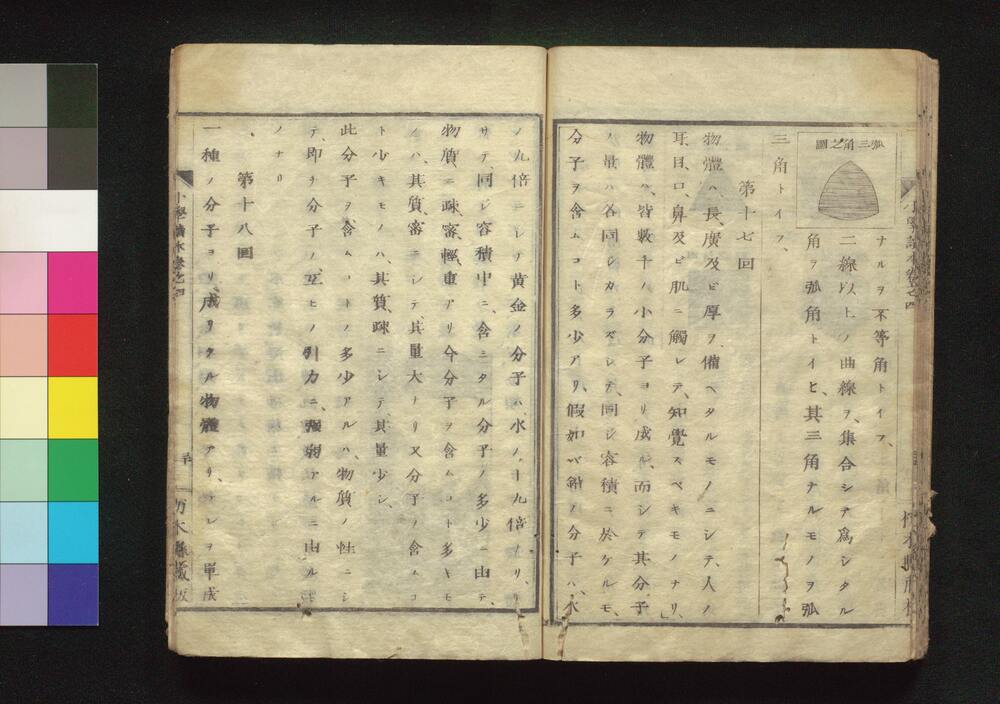 圖之角三弧
ナルヲ不等角トイフ、
二線以上ノ曲線ヲ、集合シテ爲シタル
角ヲ弧角トイヒ、其三角ナルモノヲ弧
三角トイフ、
第十七回
物體ハ、長、廣及ビ厚ヲ、備ヘタルモノニシテ、人ノ
耳、目、口、鼻、及ビ肌ニ觸レテ、知覺スベキモノナリ、
物體ハ、皆數千ノ小分子ヨリ成ル、而シテ其分子
ノ量ハ各同シカラズシテ、同シ容積ニ於ケルモ、
分子ヲ含ムコト多少アリ、假如バ鉛ノ分子ハ、水
ノ九倍ニシテ黄金ノ分子ハ、水ノ十九倍ナリ、
サテ、同シ容積中ニ、含ミタル分子ノ多少ニ由テ、
物質ニ、疎、密、輕、重アリ今分子ヲ含ムコト多キモ
ノハ、其質、密ニシテ、其量大ナリ又分子ノ含ムコ
ト少キモノハ、其質、疎ニシテ、其量少シ、
此分子ヲ、含ムコトノ多少アルハ、物質ノ性ニシ
テ、即チ分子ノ互ヒノ引力ニ、強弱アルニ由ルモ
ノナリ
第十八回
一種ノ分子ヨリ、成リタル物體アリ、コレヲ單成
小學讀本卷之四